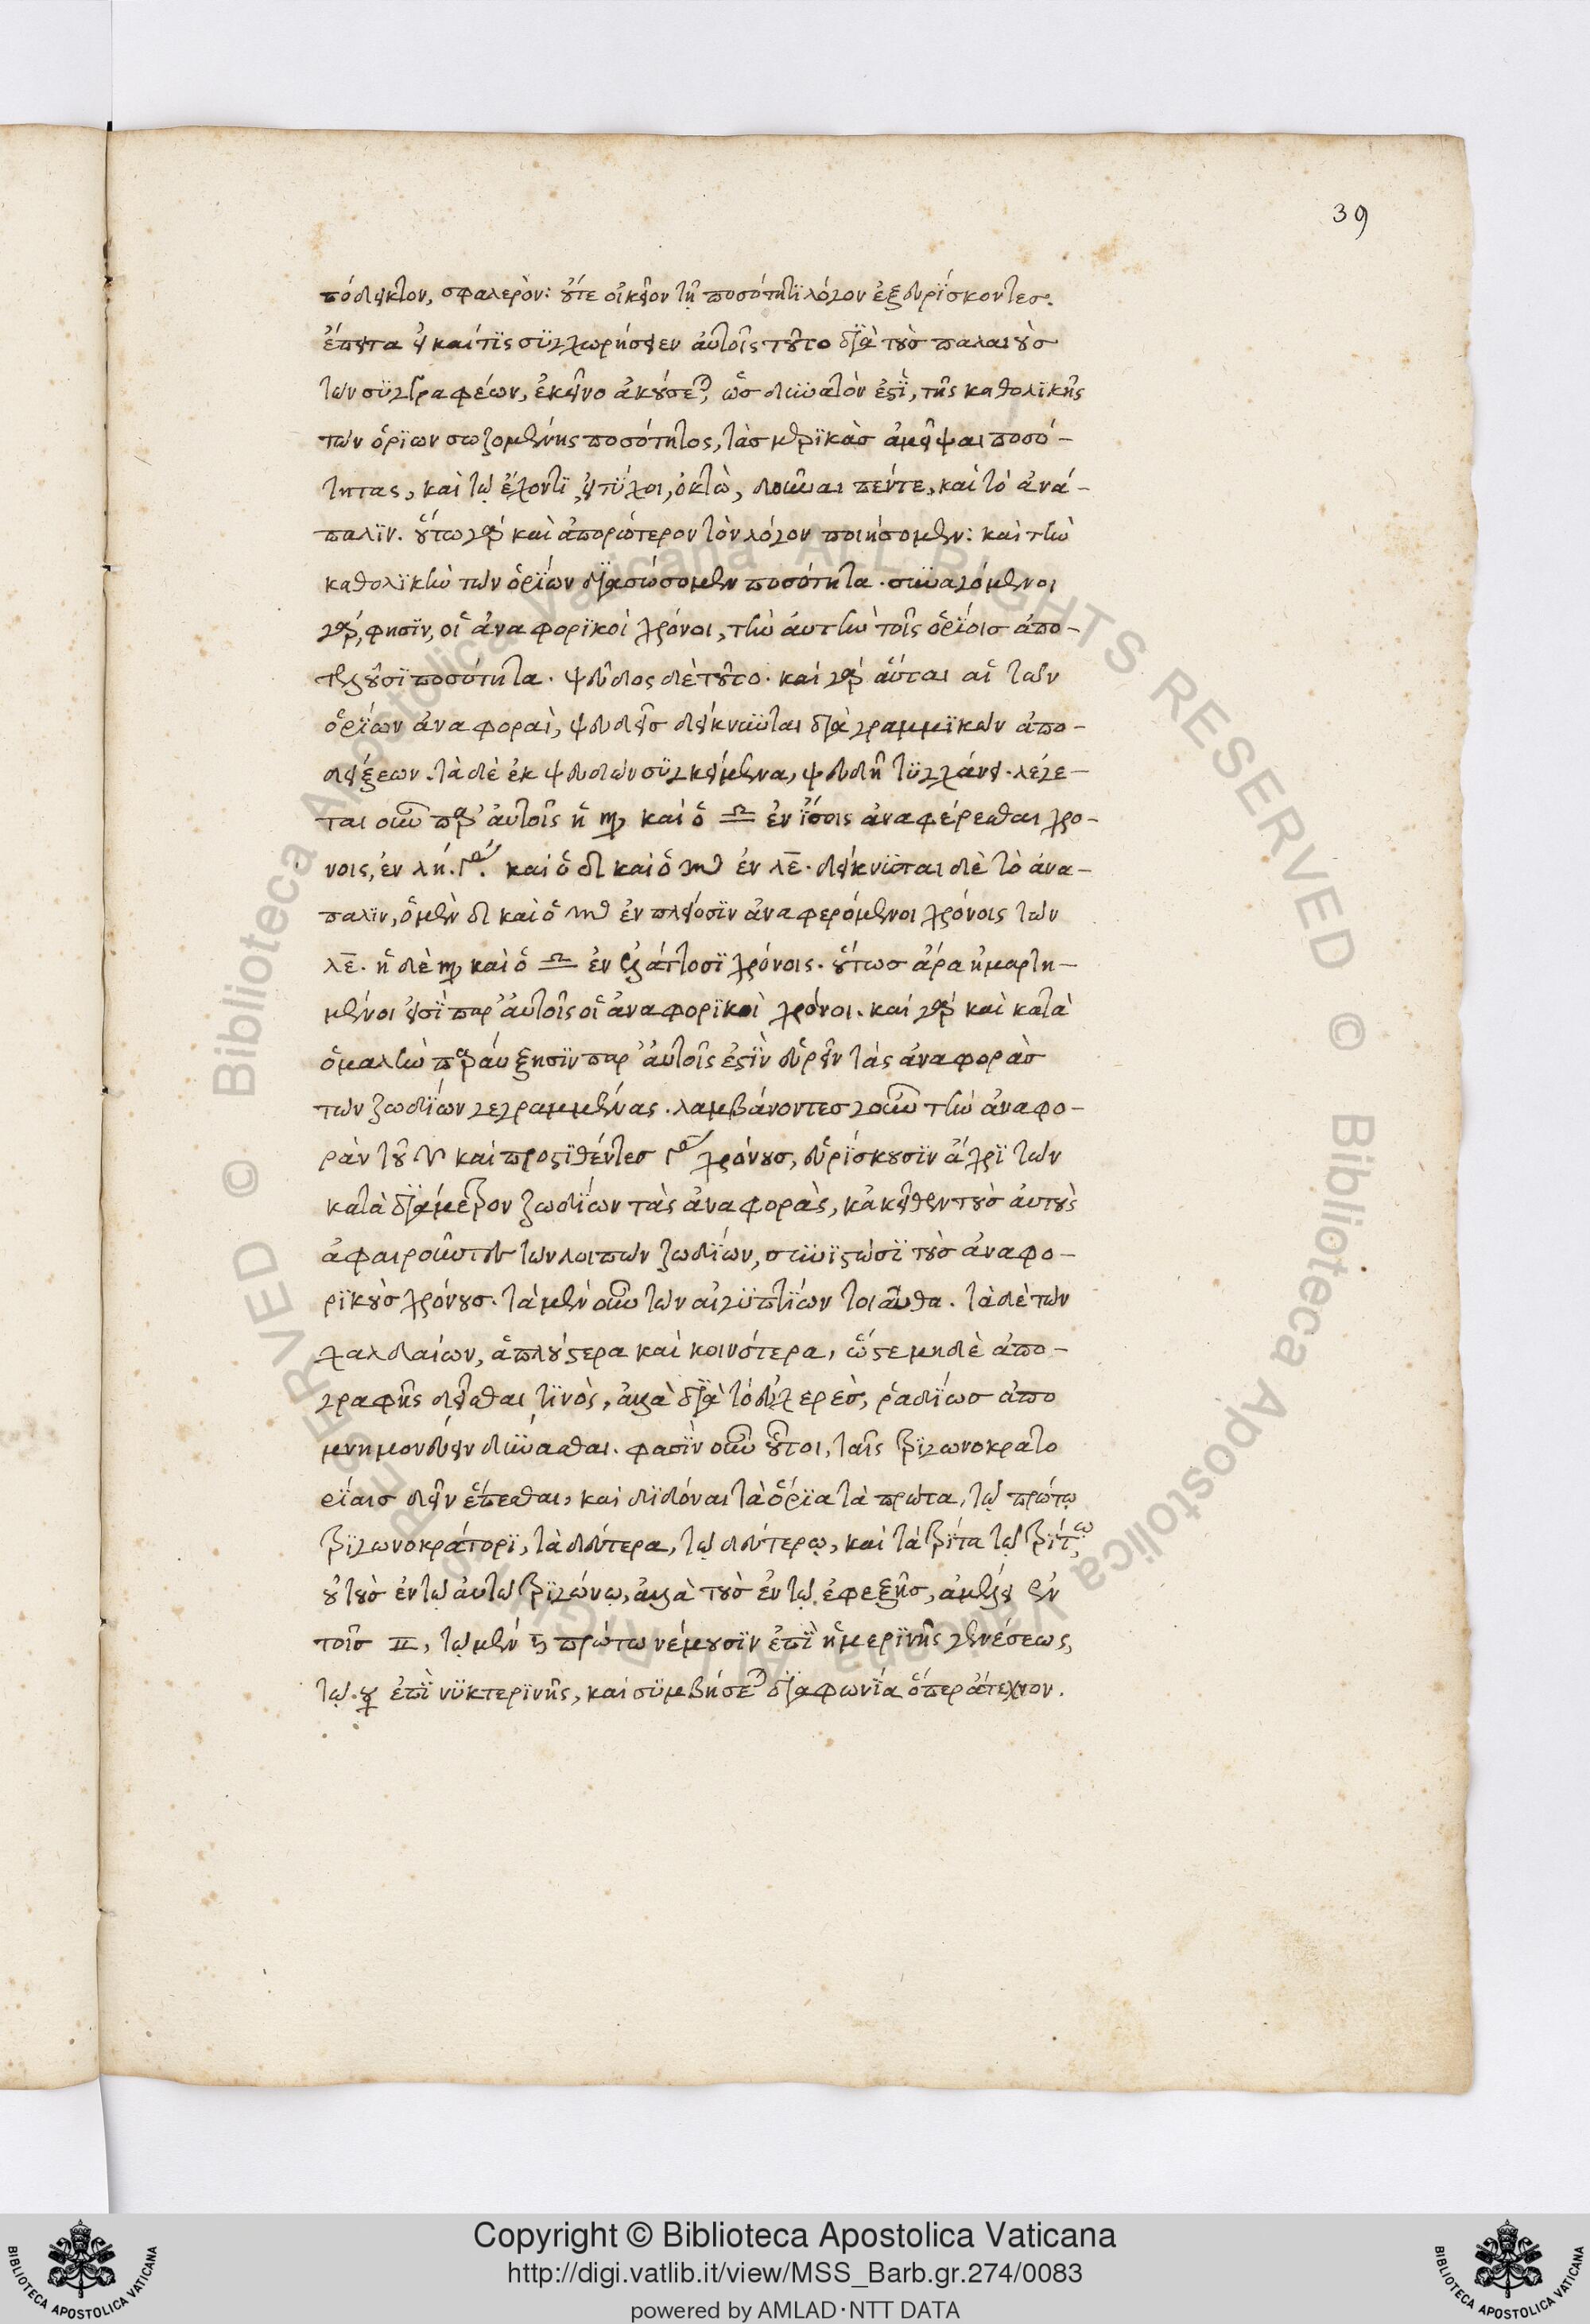 39
πόδεικτον, σφαλερὸν: οὔτε οἰκεῖον τῇ ποσότητϊ λόγον ἐξευρΐσκοντες.
ἔπειτα εἰ καί τϊς συγχωρήσειεν αὐτοῖς τοῦτο διὰ τοὺς παλαιοὺς
τῶν συγγραφέων, ἐκεῖνο ἀκούσεται, ὡς δυνατὸν ἐστὶ, τῆς καθολϊκῆς
τῶν ὁρΐων σωζομένης ποσότητος, τὰς μερϊκὰς ἀμεῖψαι ποσό-
τητας, καὶ τῷ ἔχοντϊ, εἰ τύχοι, ὀκτὼ, δοῦναι πέντε, καὶ τὸ ἀνά-
παλϊν. οὕτω γὰρ καὶ ἀπορώτερον τὸν λόγον ποιήσομεν: καὶ τὴν
καθολϊκὴν τῶν ὁρΐων διασώσομεν ποσότητα. συναγόμενοι
γὰρ, φησϊν, οἱ ἀναφορϊκοὶ χρόνοι, τὴν αὐτὴν τοῖς ὁρΐοις ἀπο-
τελοῦσϊ ποσότητα. ψεῦδος δὲ τοῦτο. καὶ γὰρ αὗται αἱ τῶν
ὁρΐων ἀναφοραὶ, ψευδεῖς δείκνυνται διὰ γραμμϊκῶν ἀπο-
δείξεων. τὰ δὲ ἐκ ψευδῶν συγκείμενα, ψευδῆ τυγχάνει. λέγε-
ται οὖν παρ' αὐτοῖς ἡ ♍ καὶ ὁ ♎ ἐν ἴσοις ἀναφέρεσθαι χρό-
νοις, ἐν λη. γο. καὶ ὁ ♌ καὶ ὁ ♏ ἐν λε. δείκνυται δὲ τὸ ἀνά-
παλϊν, ὁ μὲν ♌ καὶ ὁ ♏ ἐν πλείοσϊν ἀναφερόμενοι χρόνοις τῶν
λε. ἡ δὲ ♍ καὶ ὁ ♎ ἐν ἐλάττοσϊ χρόνοις. οὕτως ἄρα ἡμαρτη-
μένοι εἰσϊ παρ' αὐτοῖς οἱ ἀναφορϊκοὶ χρόνοι. καὶ γὰρ καὶ κατὰ
ὁμαλὴν παραύξησϊν παρ' αὐτοῖς ἐστὶν εὑρεῖν τὰς ἀναφορὰς
τῶν ζωδΐων γεγραμμένας. λαμβάνοντες γοῦν τὴν ἀναφο-
ρὰν τοῦ ♈ καὶ προστϊθέντες γο χρόνους, εὑρΐσκουσϊν ἄχρϊ τῶν
κατὰ διάμετρον ζωδΐων τὰς ἀναφορὰς, κἀκεῖθεν τοὺς αὐτοὺς
ἀφαιροῦντες τῶν λοιπῶν ζωδΐων, συνϊστῶσϊ τοὺς ἀναφο-
ρϊκοὺς χρόνους. τὰ μὲν οὖν τῶν αἰγυπτΐων τοιαῦτα. τὰ δὲ τῶν
χαλδαίων, ἁπλούστερα καὶ κοινότερα, ὥστε μηδὲ ἀπο-
γραφῆς δεῖσθαι τϊνὸς, ἀλλὰ διὰ τὸ εὐχερὲς, ῥαδΐως ἀπο
μνημονεύειν δύνασθαι. φασὶν οὖν οὗτοι, ταῖς τρϊγωνοκρατο
ρΐαις δεῖν ἕπεσθαι, καὶ δϊδόναι τὰ ὅρϊα τὰ πρῶτα, τῷ πρώτῳ
τρϊγωνοκράτορϊ, τὰ δεύτερα, τῷ δευτέρῳ, καὶ τὰ τρΐτα τῷ τρΐτῳ,
οὐ τοὺς ἐν τῷ αὐτῷ τρϊγώνῳ, ἀλλὰ τοὺς ἐν τῷ ἐφεξῆς, ἀμέλει ἐν
τοῖς ♊, τῷ μὲν ♄ πρώτῳ νέμουσϊν ἐπὶ ἡμερϊνῆς γενέσεως,
τῷ. ☿ ἐπὶ νυκτερϊνῆς, καὶ συμβήσεται διαφωνΐα ὅπερ ἄτεχνον.
Copyright © Biblioteca Apostolica Vaticana
http://digi.vatlib.it/view/MSS_Barb.gr.274/0083
powered by AMLAD·NTT DATA
BIBLIOTECA APOSTOLICA VATICANA
BIBLIOTECA APOSTOLICA VATICANA
© Biblioteca Apostolica Vaticana ALL RIGHTS RESERVED © Biblioteca Apostolica Vaticana ALL RIGHTS RESERVED